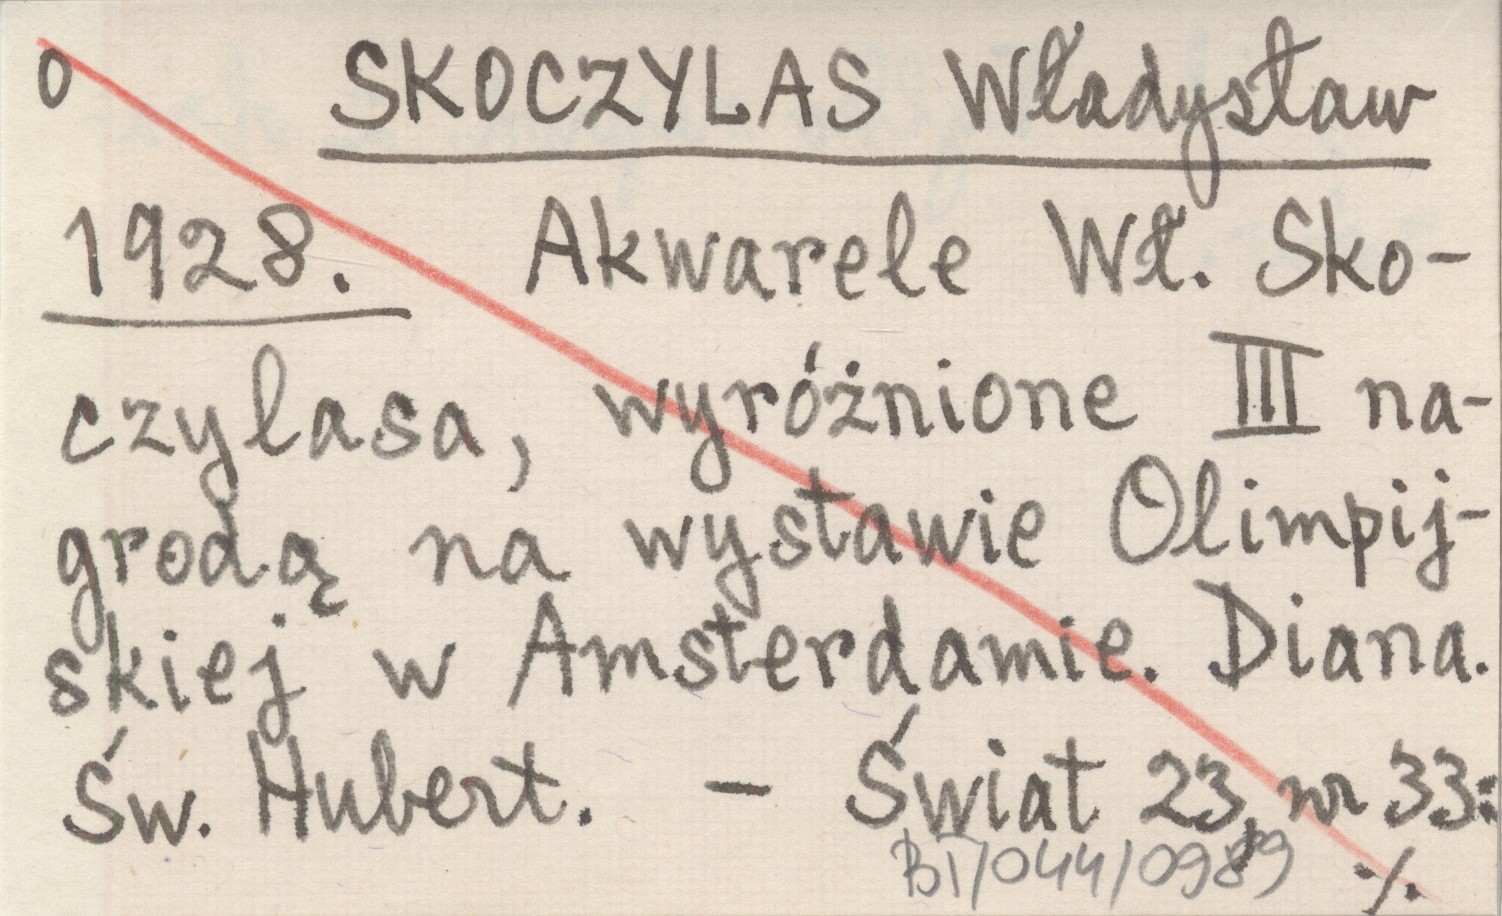 O SKOCZYLAS Władysław
1928. Akwarele Wł. Sko-
czylasa, wyróżnione III na-
grodą na wystawie Olimpij-
skiej w Amsterdamie. Diana.
Św. Hubert. – Świat 23, nr 33:
BI/044/0989 ./.